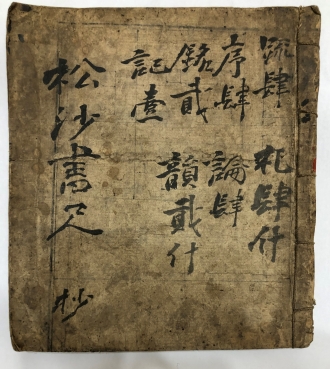 疏肆 札肆什
序肆 論肆
銘貳 韻貳什
記壹
松沙書尺 抄